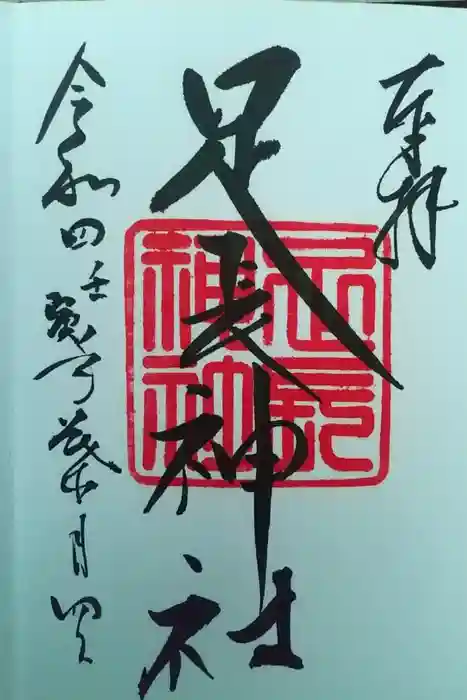 奉拝
足長神社
足長
神社
令和四壬寅年葉月四日